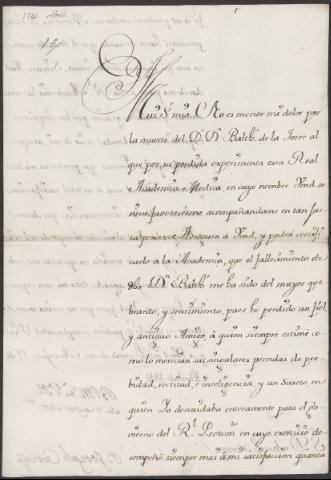 1741. Abril.
1
13
Mui S.r mio. No es menor mi dolor por
la muerte del D.r D.n Balth.r de la Torre al
que por su perdida experimenta esa Real
Academia Medica, en cuyo nombre Vmd se
sirve favorecerme acompañandome en tan
y podrá certifi-
carlo a la Academia, que el fallecimiento de
dho D.n Balth.r me ha sido del mayor que-
branto, y sentimiento, pues he perdido un fiel,
y antiguo Amigo, à quien siempre estimé co-
mo lo merecian sus singulares prendas de pro-
bidad, rectitud, è inteligencia, y un Sugeto, en
quien Yo descuidaba enteramente para el go-
vierno del R.l Protom.to en cuyo exercicio de-
sempeñó siempre mui à mi satisfaccion quanto